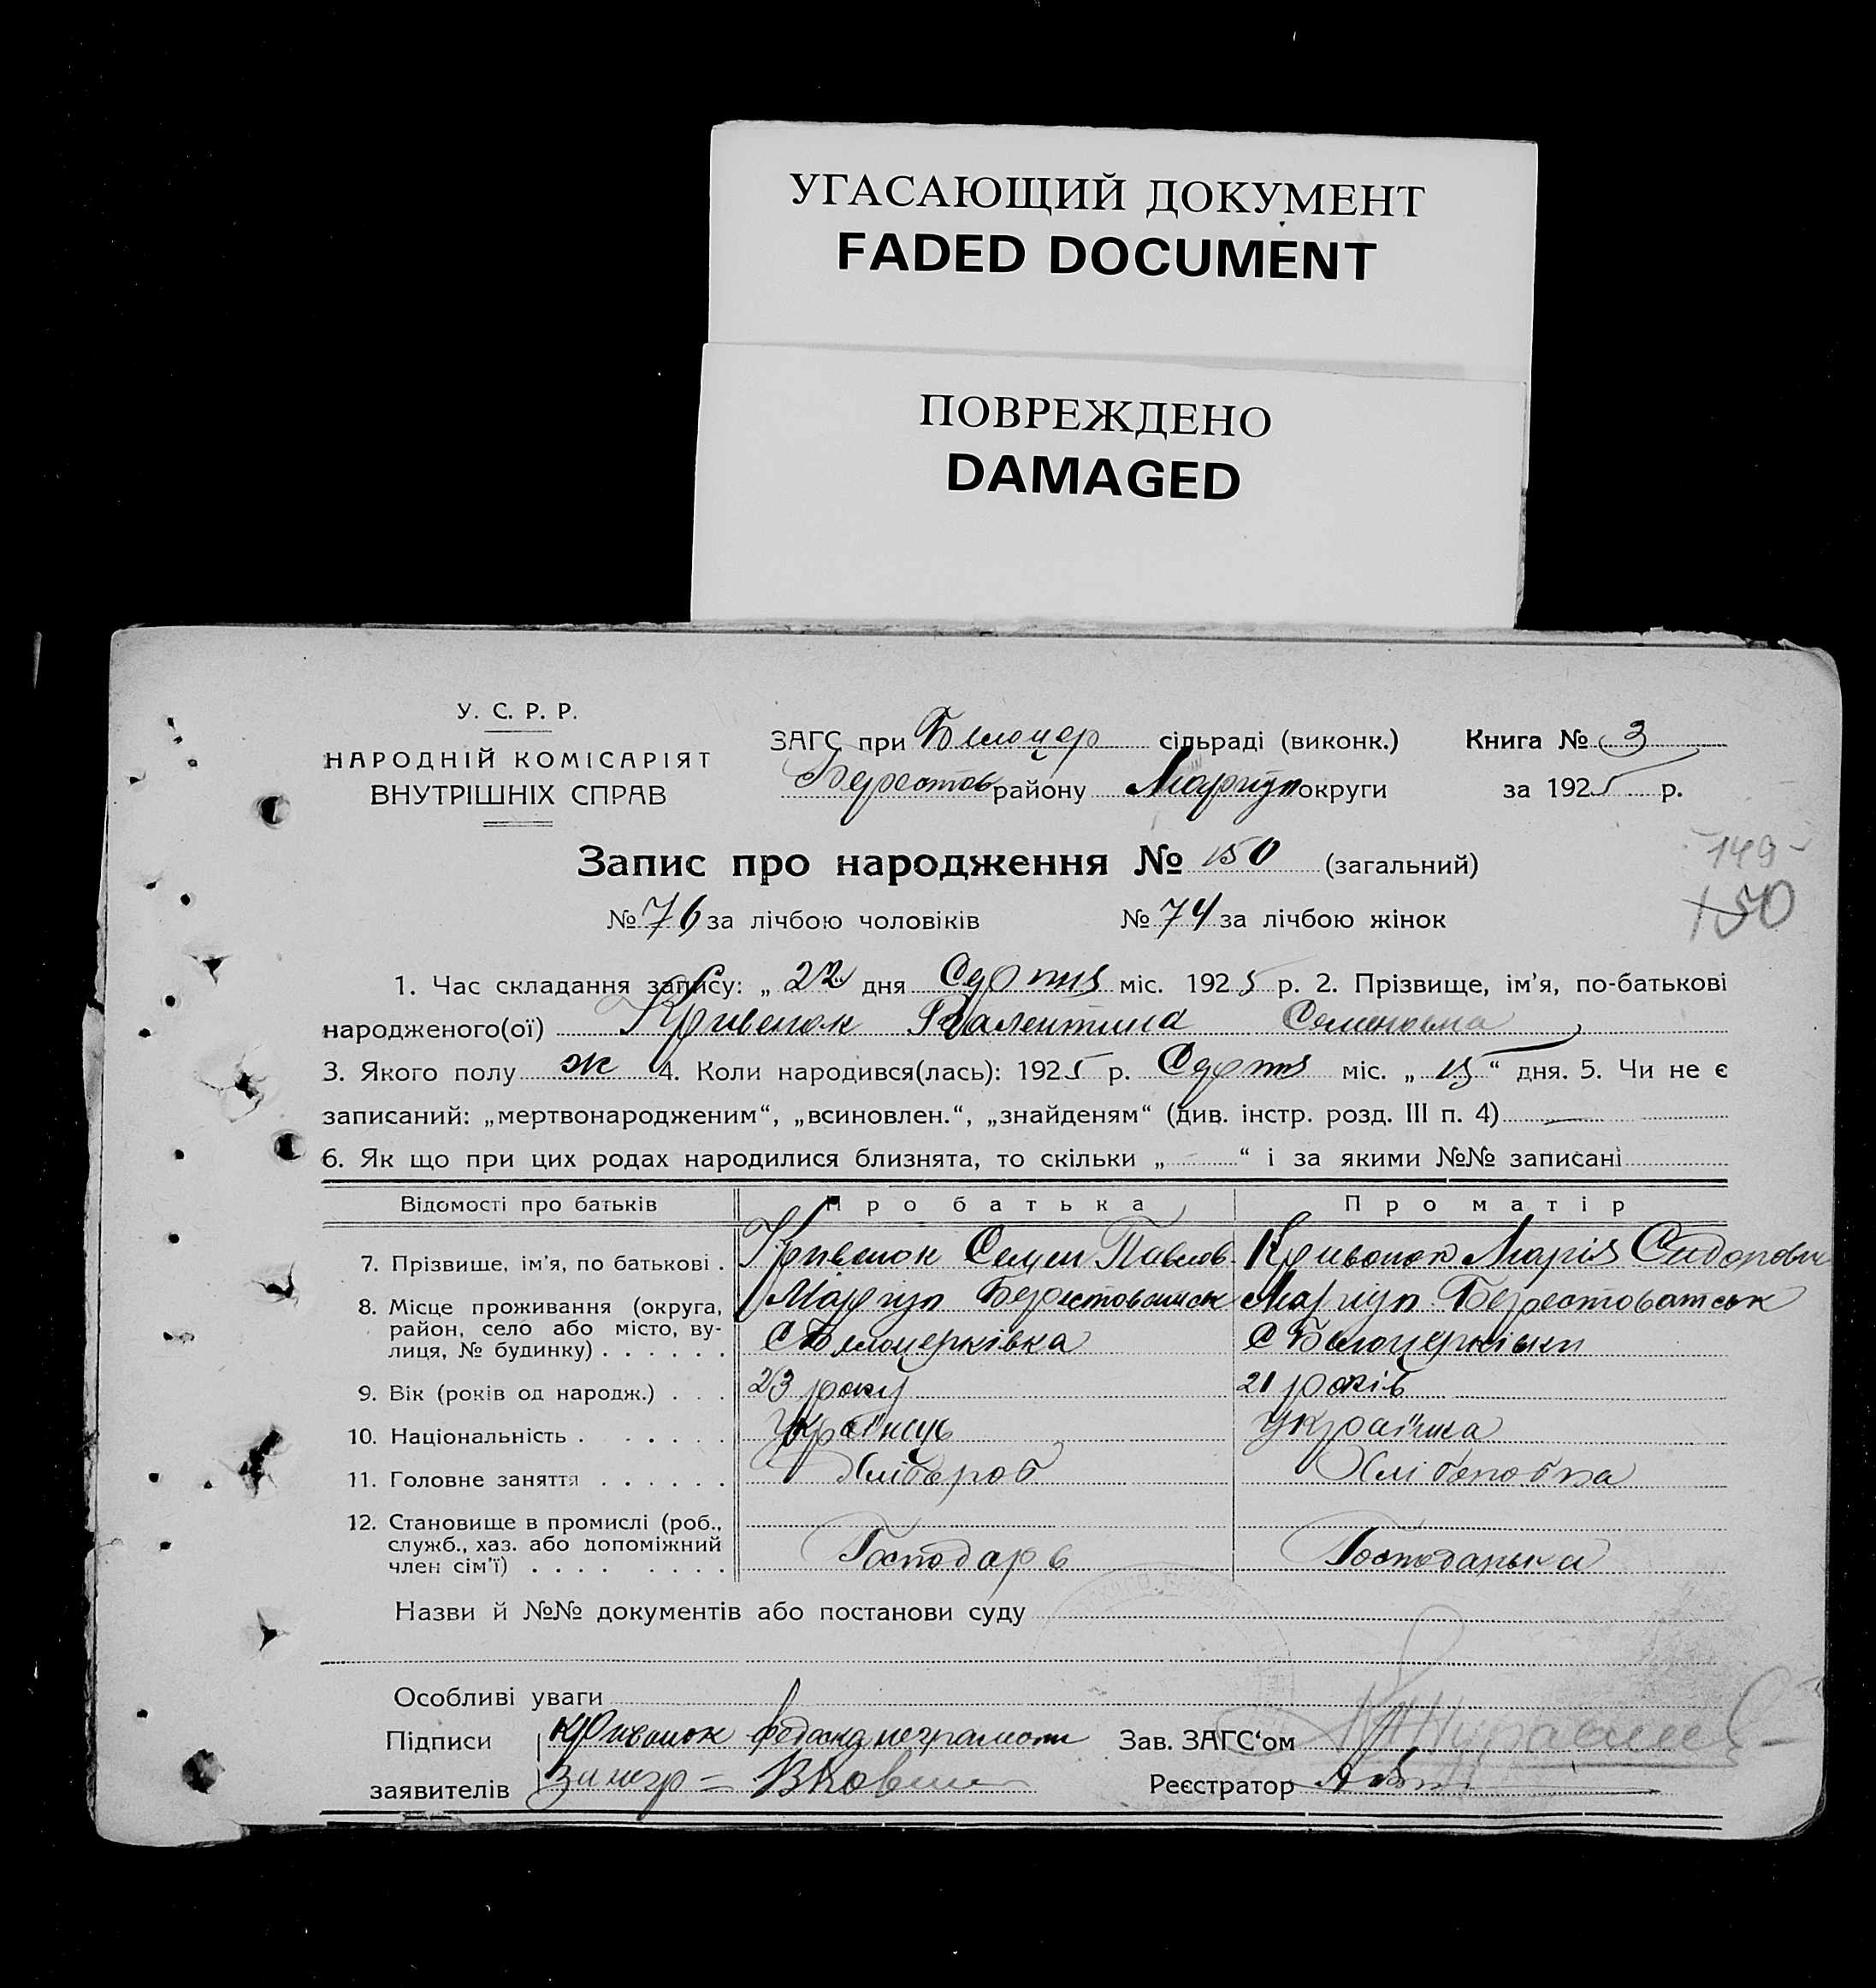 УГАСАЮЩИЙ ДОКУМЕНТ
FADED DOCUMENT
ПОВРЕЖДЕНО
DAMAGED
У. С. Р. Р.
НАРОДНІЙ КОМІСАРІЯТ
ВНУТРІШНІХ СПРАВ
ЗАГС при Білоцер сільраді (виконк.) Книга № 3
Берестов району Маріуп округи за 1925 р.
Запис про народження № 150 (загальний)
149
150
№ 76 за лічбою чоловіків № 74 за лічбою жінок
1. Час складання запису: „ 22 дня Серпня міс. 1925 р. 2. Прізвище, ім'я, по-батькові
народженого(ої) Кривенок Валентина Семеновна
3. Якого полу ж 4. Коли народився(лась): 1925 р. Серпня міс. „ 15 “ дня. 5. Чи не є
записаний: „мертвонародженим“, „всиновлен.“, „знайденям“ (див. інстр. розд. III п. 4)
6. Як що при цих родах народилися близнята, то скільки „ “ і за якими №№ записані
Відомості про батьків Про батька Про матір
7. Прізвище, ім'я, по батькові . Кривенок Семен Павлов Кривонок Марія Сидоровн
8. Місце проживання (округа, Маріуп Берестоватськ Маріуп Берестоватськ
район, село або місто, ву-
лиця, № будинку) . . . . . . С Білоцерківка С Білоцерківки
9. Вік (років од народж.) . . . 23 року 21 років
10. Національність . . . . . . Українець Українка
11. Головне заняття . . . . . . Хлібороб Хліборобка
12. Становище в промислі (роб.,
служб., хаз. або допоміжний
член сім'ї) . . . . . . . . Господарь Господарька
Назви й №№ документів або постанови суду
Особливі уваги
Підписи Кривонок неграмотн Зав. ЗАГС'ом
заявителів За негр Реєстратор